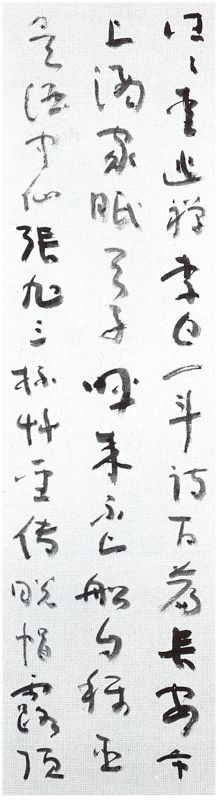 往〻愛逃禪李白一斗詩百篇長安市
上酒家眠天子呼來不上船自稱臣
是酒中仙張旭三杯艸聖傳脫帽露頂